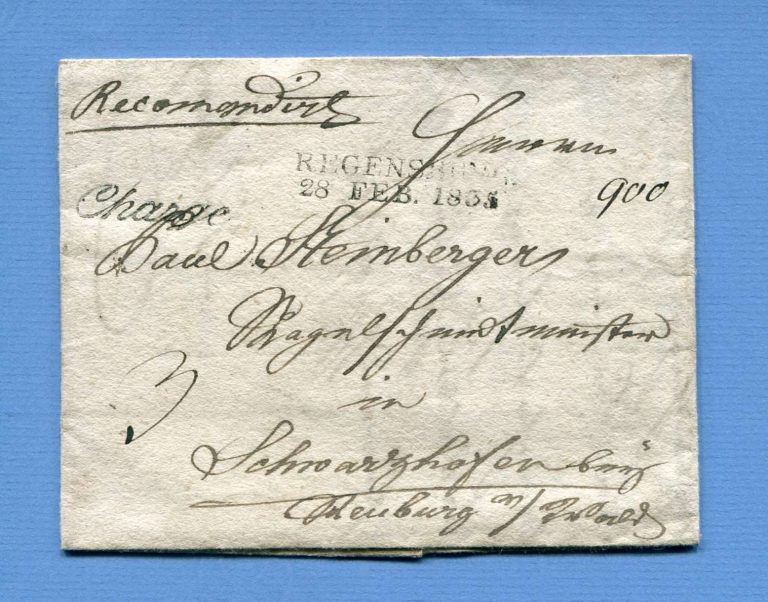 Recomandirt
Herrn
REGENSBURG.
28 FEB. 1835
900
Chargé.
Paul Steinberger
Nagelschmidtmeister
3
in
Schwarzhofen bei
Neuburg v/ Wald